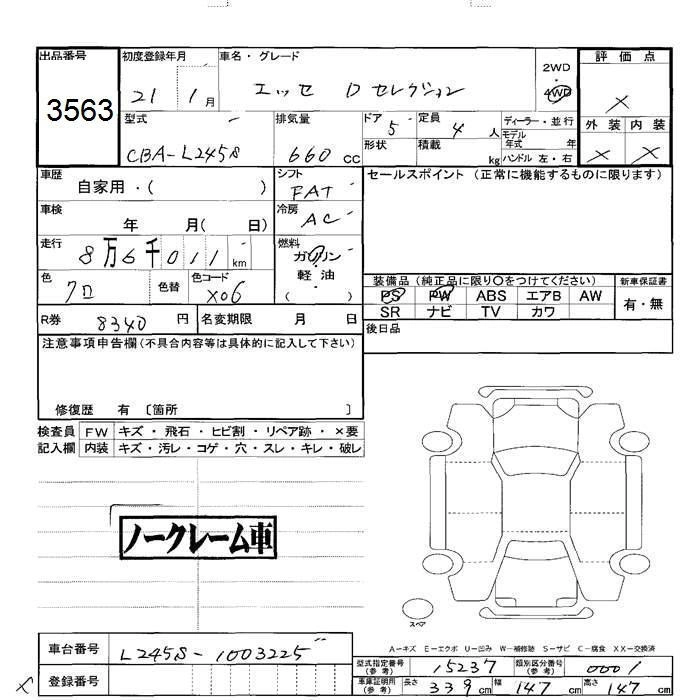 出品番号 初度登録年月 車名・グレード 評価点
3563 21 1月 エッセ Dセレクション 2WD・4WD ×
型式 排気量 ドア 5 定員 4人 ディーラー・並行 外装 内装
モデル年式 年
CBA-L245S 660CC 形状 積載 kg ハンドル 左・右 × ×
車歴 自家用・( ) シフト FAT セールスポイント(正常に機能するものに限ります)
車検 年 月( 日) 冷房 AC
走行 8万6千011km 燃料 ガソリン・軽油( )
色 クロ 色替 色コード X06
装備品(純正品に限り○をつけてください) 新車保証書
PS PW ABS エアB AW 有・無
SR ナビ TV カワ
R券 8340円 名変期限 月 日 後日品
注意事項申告欄(不具合内容等は具体的に記入して下さい)
修復歴 有 〔箇所 〕
検査員 FW キズ・飛石・ヒビ割・リペア跡・×要
記入欄 内装 キズ・汚レ・コゲ・穴・スレ・キレ・破レ
ノークレーム車
スペア
A-キズ E-エクボ U-凹み W-補修跡 S-サビ C-腐食 XX-交換済
車台番号 L245S-1003225
型式指定番号(参考) 15237 類別区分番号(参考) 0001
× 登録番号
車庫証明用(参考) 長さ 339cm 幅 147cm 高さ 147cm